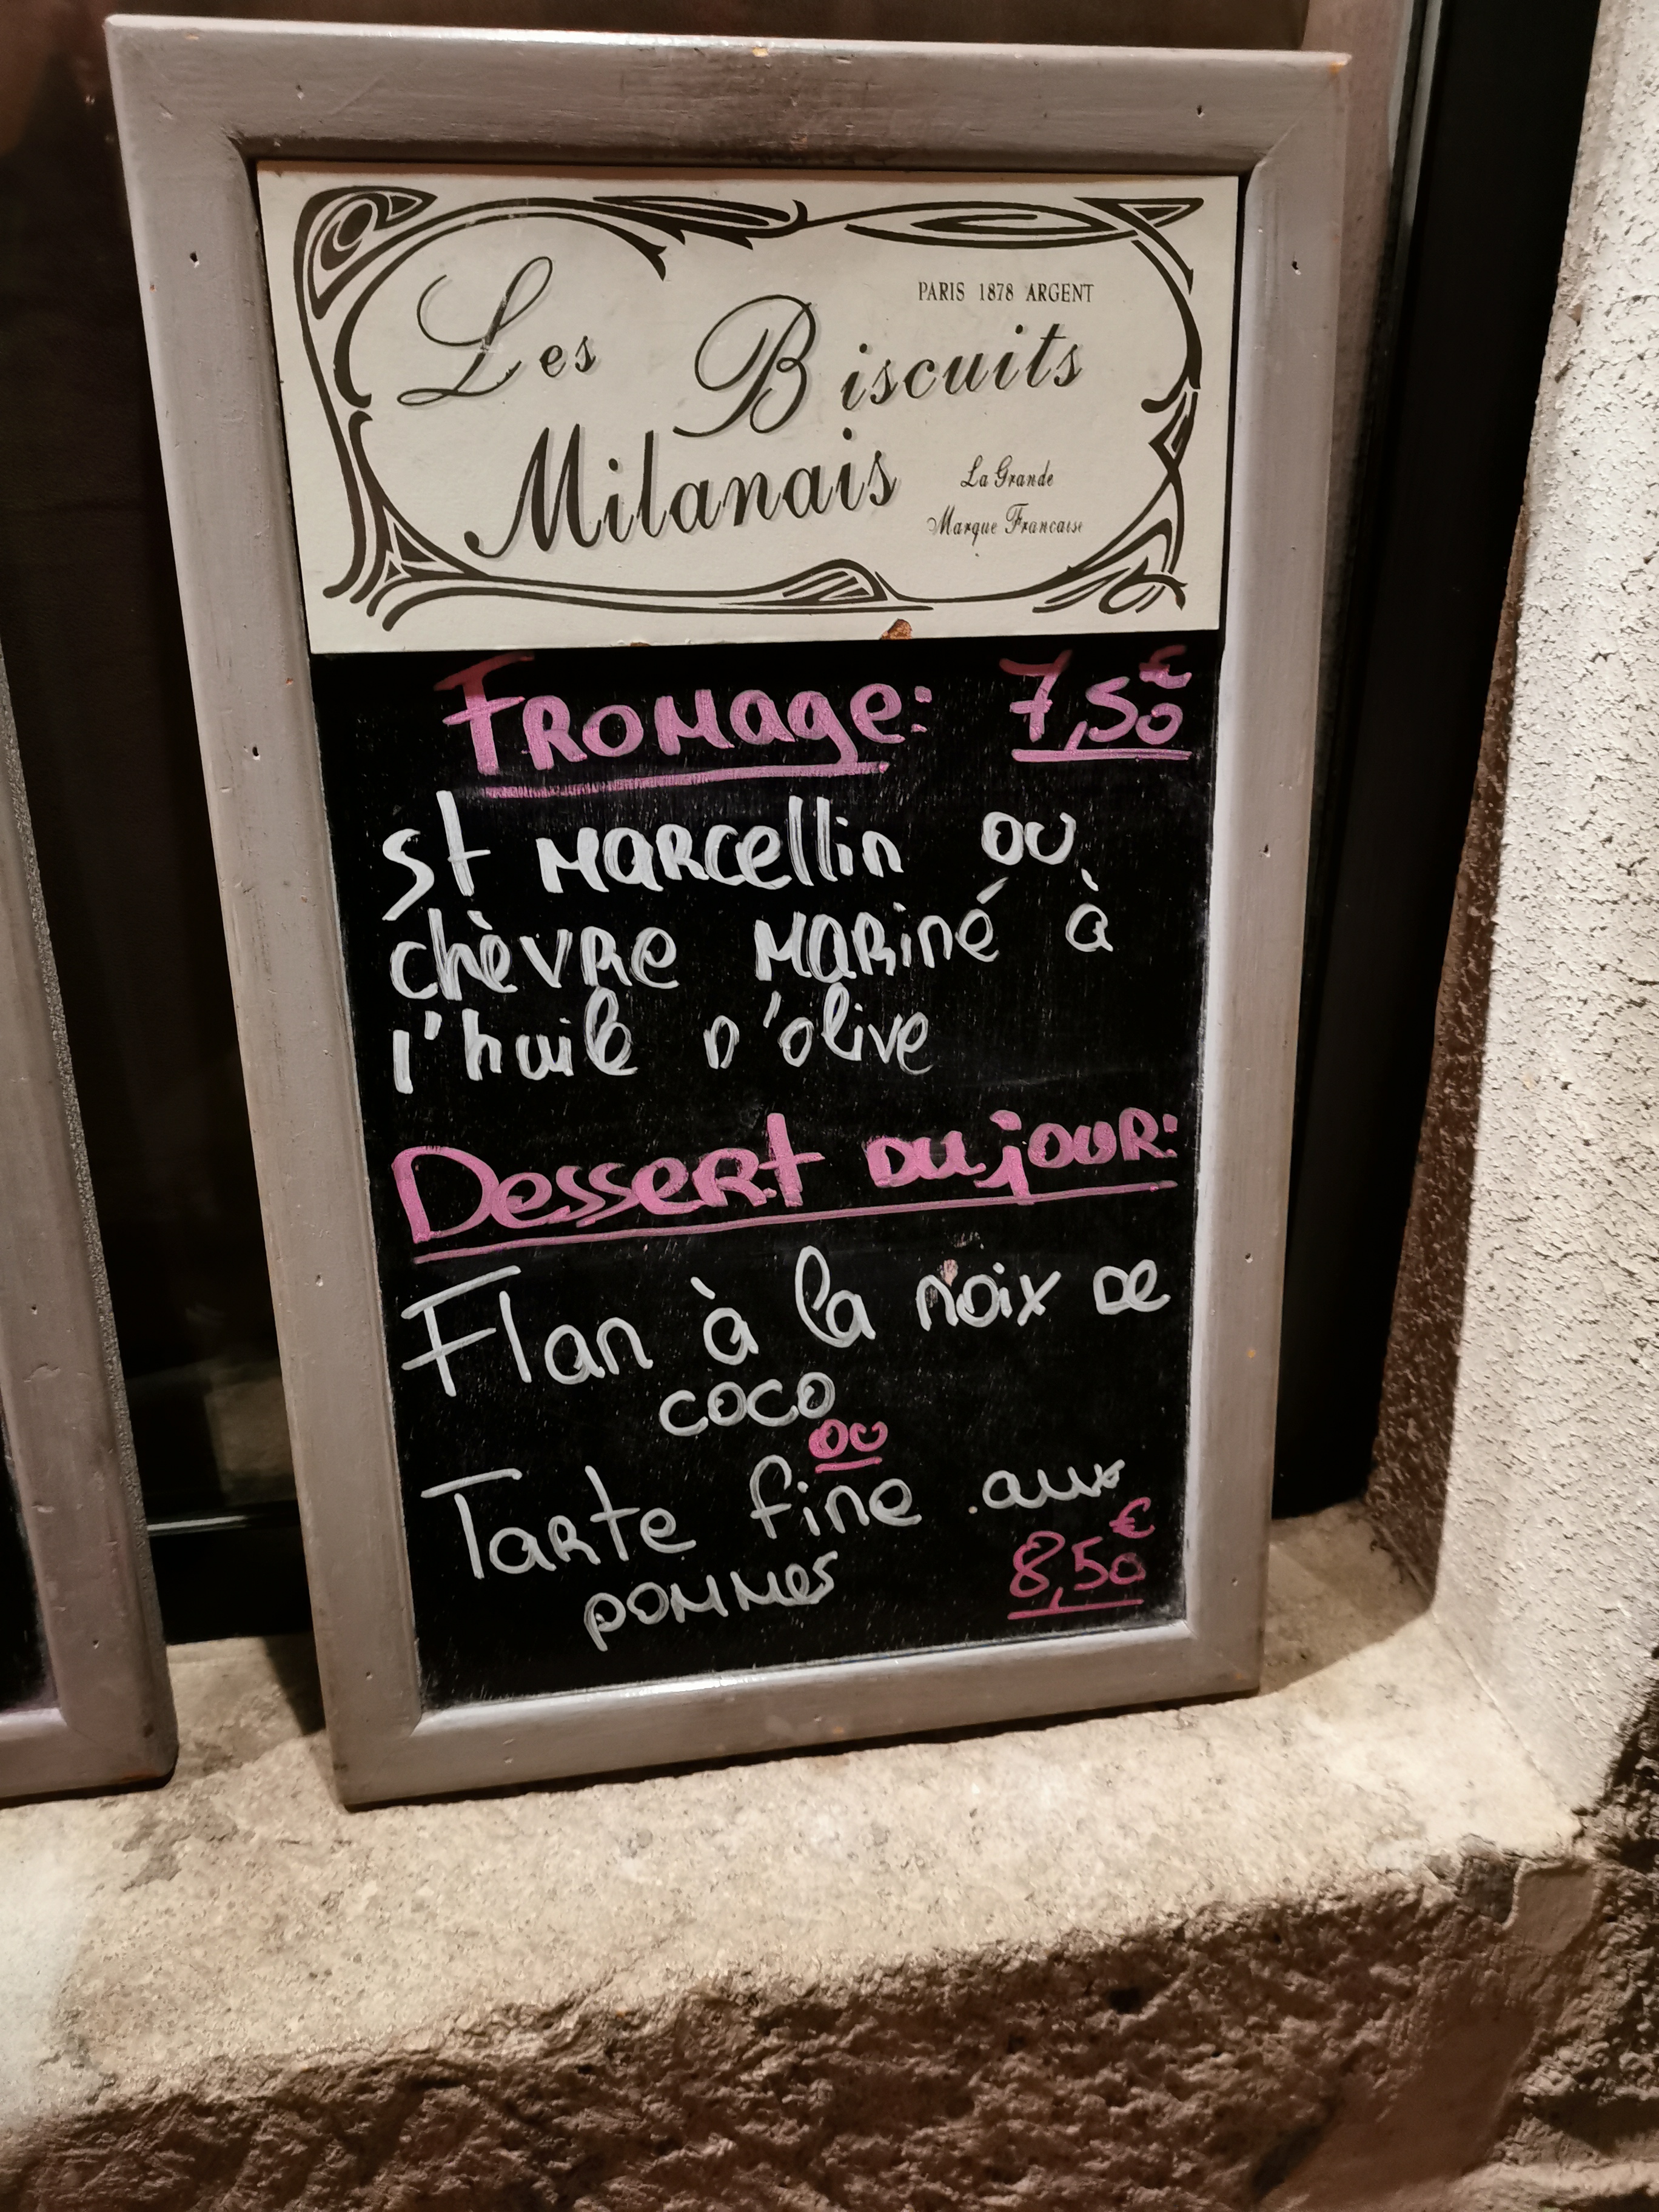 PARIS 1878 ARGENT
Les Biscuits
Milanais
La Grande
Marque Francaise
Fromage: 7,50€
St Marcellin ou
chèvre mariné à
l'huile d'olive
Dessert du jour:
Flan à la noix de
coco
ou
Tarte fine aux
pommes 8,50€